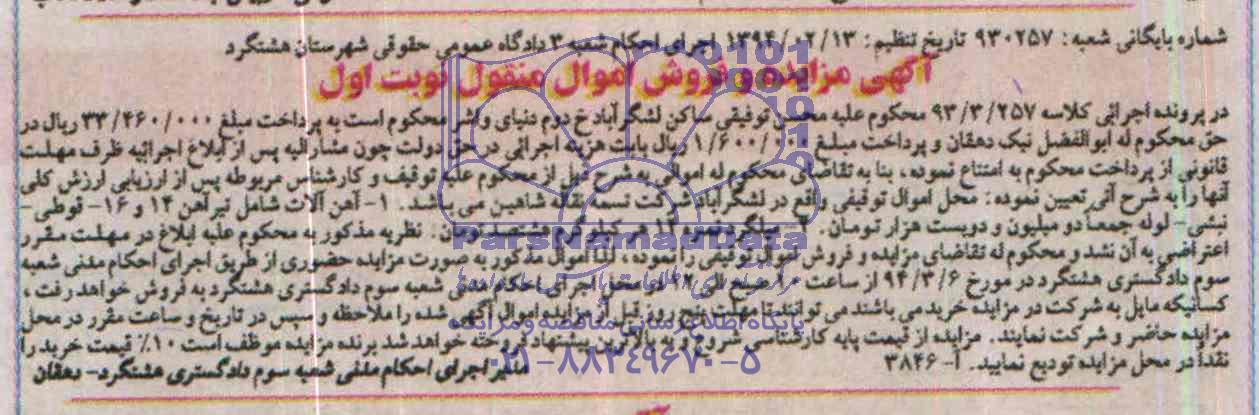 شماره بایگانی شعبه: ۹۳۰۲۵۷ تاریخ تنظیم: ۱۳۹۴/۰۲/۱۳ اجرای احکام شعبه ۳ دادگاه عمومی حقوقی شهرستان هشتگرد
آگهی مزایده و فروش اموال منقول نوبت اول
در پرونده اجرائی کلاسه ۹۳/۳/۲۵۷ محکوم علیه محسن توفیقی ساکن لشگر آباد خ دوم دنیای واشر محکوم است به پرداخت مبلغ ۳۳/۴۶۰/۰۰۰ ریال در
حق محکوم له ابوالفضل نیک دهقان و پرداخت مبلغ ۱/۶۰۰/۰۰۰ ریال بابت هزینه اجرائی در حق دولت چون مشارالیه پس از ابلاغ اجرائیه ظرف مهلت
قانونی از پرداخت محکوم به امتناع نموده، بنا به تقاضای محکوم له اموالی به شرح ذیل از محکوم علیه توقیف و کارشناس مربوطه پس از ارزیابی ارزش کلی
آنها را به شرح آتی تعیین نموده: محل اموال توقیفی واقع در لشگرآباد شرکت تسمه نقاله شاهین می باشد. ۱- آهن آلات شامل تیرآهن ۱۴ و ۱۶- قوطی-
نبشی- لوله جمعاً دو میلیون و دویست هزار تومان. ۲- میلگرد نمره ۱۲ هر کیلوگرم هشتصد تومان: نظریه مذکور به محکوم علیه ابلاغ در مهلت مقرر
اعتراضی به آن نشد و محکوم له تقاضای مزایده و فروش اموال توقیفی را نموده، لذا اموال مذکور به صورت مزایده حضوری از طریق اجرای احکام مدنی شعبه
سوم دادگستری هشتگرد در مورخ ۹۴/۳/۶ از ساعت ۱۰ صبح الی ۱۲ در محل اجرای احکام مدنی شعبه سوم دادگستری هشتگرد به فروش خواهد رفت،
کسانیکه مایل به شرکت در مزایده خرید می باشند می توانند تا مهلت پنج روز قبل از مزایده اموال آگهی شده را ملاحظه و سپس در تاریخ و ساعت مقرر در محل
مزایده حاضر و شرکت نمایند. مزایده از قیمت پایه کارشناسی شروع و به بالاترین پیشنهاد فروخته خواهد شد برنده مزایده موظف است ۱۰٪ قیمت خرید را
نقداً در محل مزایده تودیع نمایید. آ- ۳۸۴۶
مدیر اجرای احکام مدنی شعبه سوم دادگستری هشتگرد- دهقان
ParsNamadData
پایگاه اطلاع رسانی مناقصه و مزایده
۰۲۱-۸۸۳۴۹۶۷۰-۵